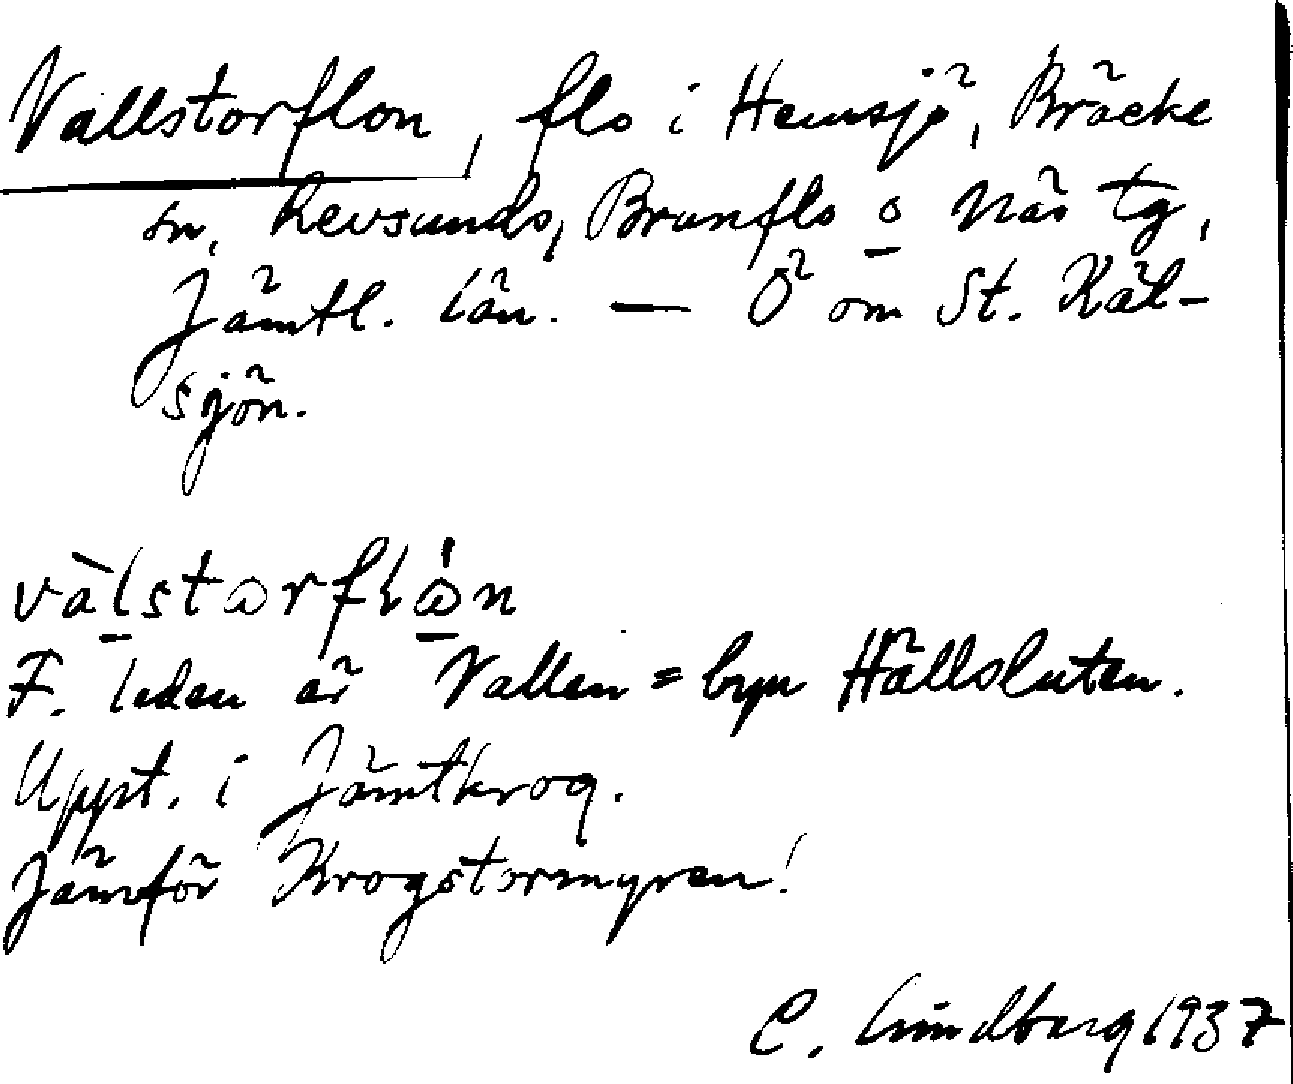 Vallstorflon, flo i Hemsjö, Bräcke
sn, Revsunds, Brunflo o Näs tg,
Jämtl. län. — Ö om St. Käl-
sjön.
vàlstωrflω̍n
F. leden är Vallen = byn Hällsluten.
Uppt. i Jämtkrog.
Jämför Krogstormyren!
C. Lindberg 1937